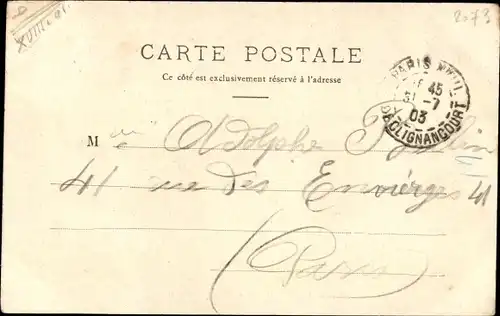 XVIII e arr.
2073
CARTE POSTALE
Ce côté est exclusivement réservé à l'adresse
PARIS XVIII
45
31 -7
03
DE CLIGNANCOURT
M Adolphe
41 rue des Envierges 41
Paris